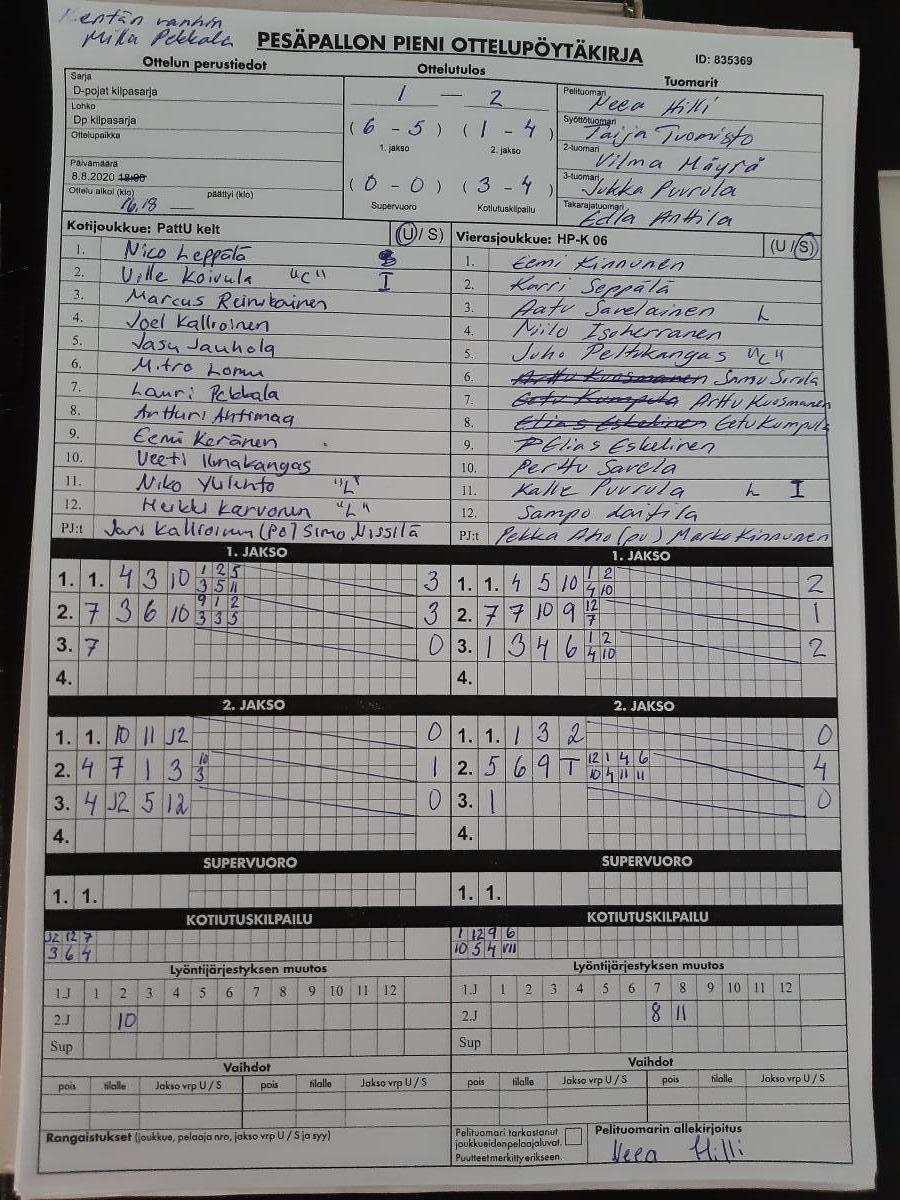 Kentän vanhin
Mika Pekkala
PESÄPALLON PIENI OTTELUPÖYTÄKIRJA
ID: 835369
Ottelun perustiedot
Sarja
D-pojat kilpasarja
Lohko
Dp kilpasarja
Ottelupaikka
Päivämäärä
8.8.2020 18:00
Ottelu alkoi (klo) päättyi (klo)
16.18
Ottelutulos
1 — 2
(6 - 5) (1 - 4)
1. jakso 2. jakso
(0 - 0) (3 - 4)
Supervuoro Kotiutuskilpailu
Tuomarit
Pelituomari Neea Hilli
Syöttötuomari Taija Tuomisto
2-tuomari Vilma Mäyrä
3-tuomari Jukka Puurula
Takarajatuomari Edla Anttila
Kotijoukkue: PattU kelt (U / S)
1. Nico Leppälä
2. Ville Koivula "C" I
3. Marcus Reinikainen
4. Joel Kallioinen
5. Jasu Jauhola
6. Mitro Lomu
7. Lauri Pekkala
8. Artturi Ahtimaa
9. Eemi Keränen
10. Veeti Ilmakangas
11. Niko Yulehto "L"
12. Heikki Karvonen "L"
PJ:t Jari Kallioinen (PO) Simo Nissilä
Vierasjoukkue: HP-K 06 (U / S)
1. Eemi Kinnunen
2. Karri Seppälä
3. Aatu Savelainen L
4. Niilo Isoherranen
5. Juho Peltokangas "C"
6. Arttu Kuosmanen Samu Sirola
7. Eetu Kumpula Arttu Kuosmanen
8. Elias Eskelinen Eetu Kumpula
9. Elias Eskelinen
10. Perttu Savela
11. Kalle Puurula L I
12. Sampo Laitila
PJ:t Pekka Aho (pu) Marko Kinnunen
1. JAKSO
1. 1. 4 3 10 1 2 5 3
3 5 11
2. 7 3 6 10 9 1 2 3
3 3 5
3. 7 0
4.
1. JAKSO
1. 1. 4 5 10 1 2 2
4 10
2. 7 7 10 9 12 1
7
3. 1 3 4 6 1 2 2
4 10
4.
2. JAKSO
1. 1. 10 11 J2 0
2. 4 7 1 3 10 1
3
3. 4 J2 5 12 0
4.
2. JAKSO
1. 1. 1 3 2 0
2. 5 6 9 T 12 1 4 6 4
10 4 11 11
3. 1 0
4.
SUPERVUORO
1. 1.
SUPERVUORO
1. 1.
KOTIUTUSKILPAILU
J2 12 7
3 6 4
KOTIUTUSKILPAILU
1 12 9 6
10 5 4 VII
Lyöntijärjestyksen muutos
1.J 1 2 3 4 5 6 7 8 9 10 11 12
2.J 10
Sup
Lyöntijärjestyksen muutos
1.J 1 2 3 4 5 6 7 8 9 10 11 12
2.J 8 11
Sup
Vaihdot
pois tilalle Jakso vrp U / S pois tilalle Jakso vrp U / S
Vaihdot
pois tilalle Jakso vrp U / S pois tilalle Jakso vrp U / S
Rangaistukset (joukkue, pelaaja nro, jakso vrp U / S ja syy)
Pelituomari tarkastanut
joukkueidenpelaajaluvat.
Puutteet merkitty erikseen.
Pelituomarin allekirjoitus
Neea Hilli